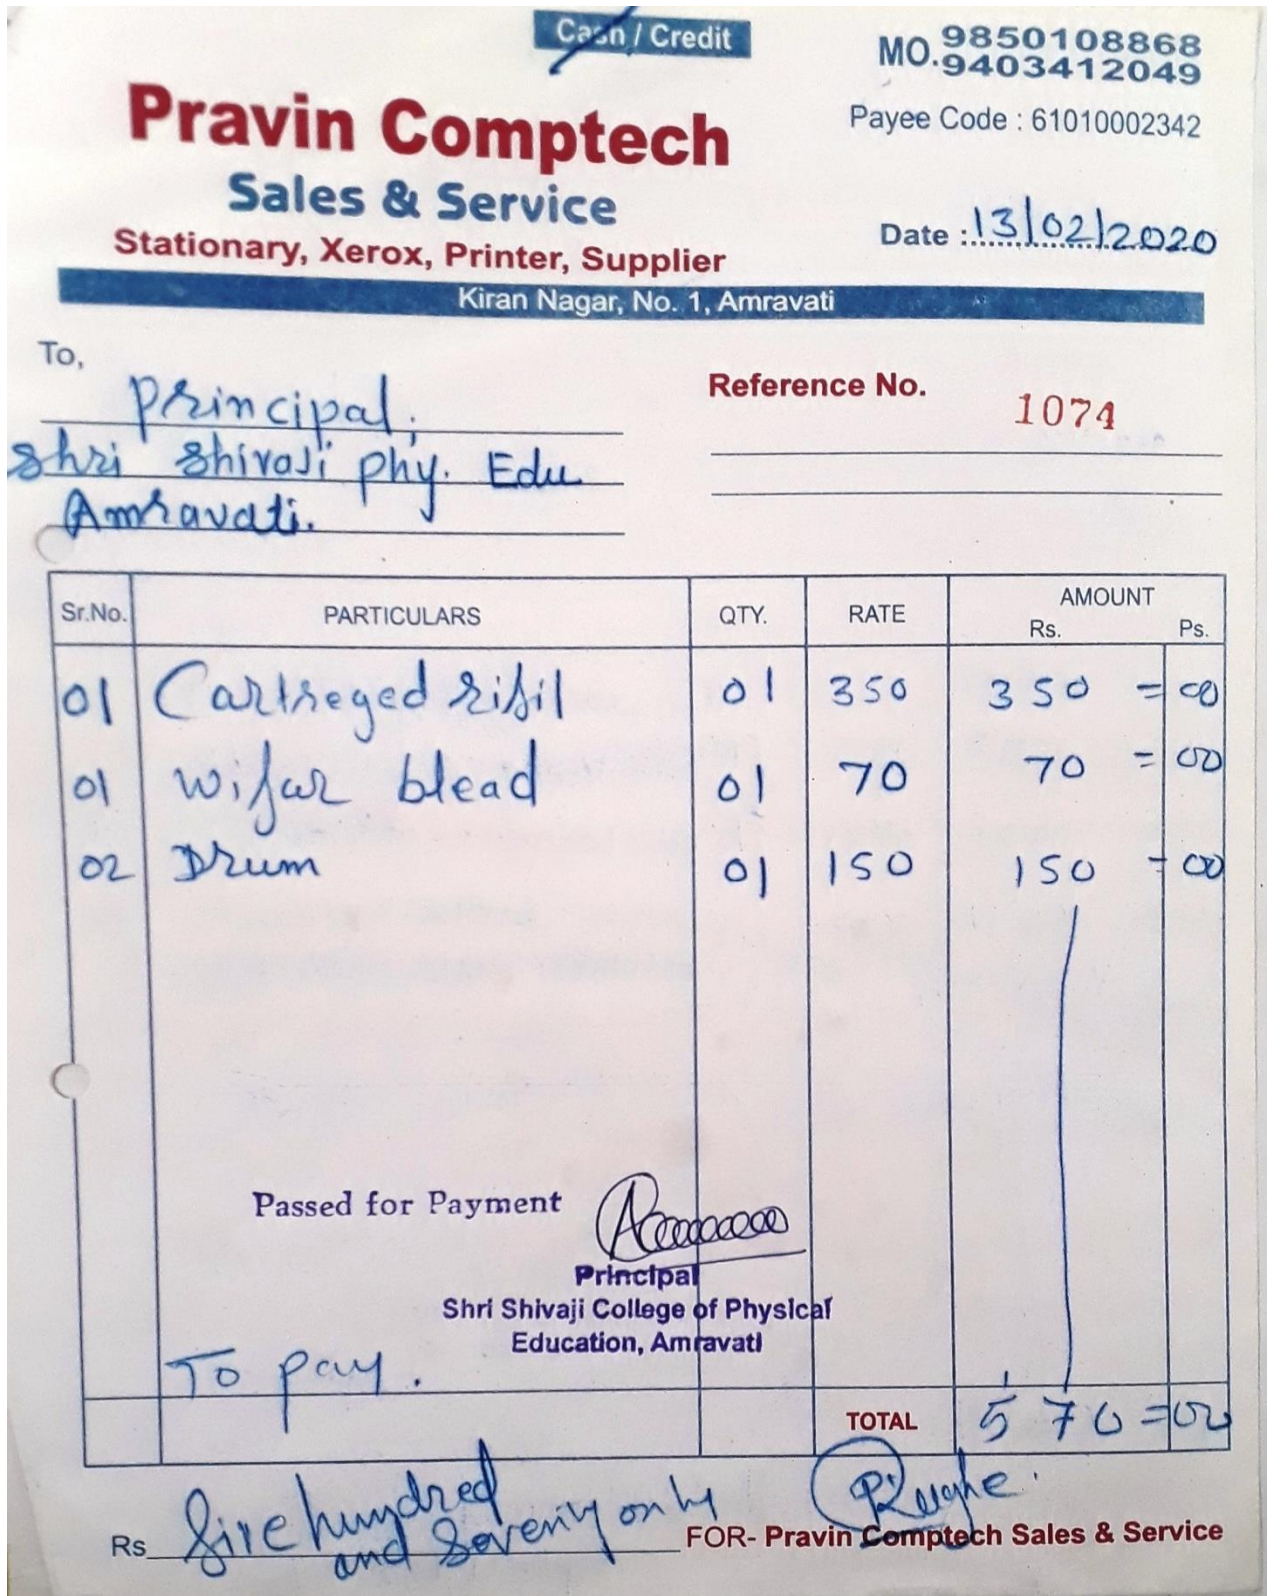 Cash / Credit
MO. 9850108868
9403412049
Payee Code : 61010002342
Pravin Comptech
Sales & Service
Stationary, Xerox, Printer, Supplier
Date : 13/02/2020
Kiran Nagar, No. 1, Amravati
To,
Principal,
Shri Shivaji phy. Edu
Amravati.
Reference No. 1074
Sr.No. PARTICULARS QTY. RATE AMOUNT
Rs. Ps.
01 Cartreged rifil 01 350 350 = 00
01 wifar blead 01 70 70 = 00
02 Drum 01 150 150 - 00
Passed for Payment
Principal
Shri Shivaji College of Physical
Education, Amravati
To pay.
TOTAL 570 = 00
Rs five hundred
and Seventy only
FOR- Pravin Comptech Sales & Service